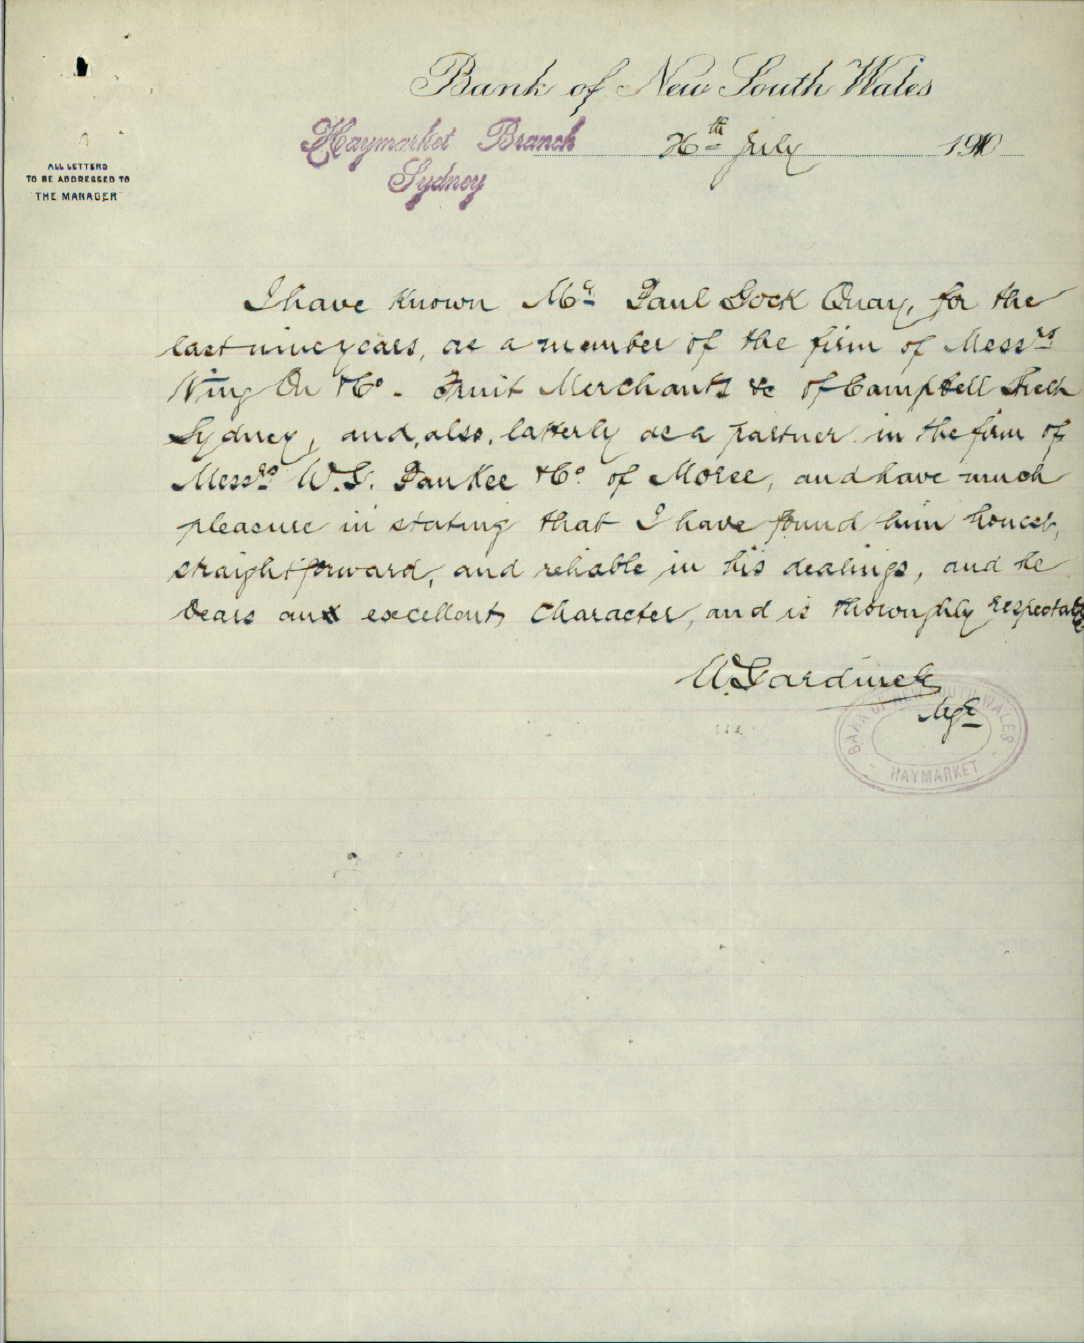 Bank of New South Wales
Haymarket Branch
Sydney
26th July 1910
ALL LETTERS
TO BE ADDRESSED TO
THE MANAGER
I have known Mr Paul Gock Quay, for the
last nine years, as a member of the firm of Messrs
Wing On & Co. Fruit Merchants &c of Campbell Street
Sydney, and, also, latterly as a partner in the firm of
Messrs W.G. Pan Kee & Co. of Moree, and have much
pleasure in stating that I have found him honest,
straightforward, and reliable in his dealings, and he
bears an excellent character, and is thoroughly respectable
W. Gardiner
Mgr
BANK OF NEW SOUTH WALES
HAYMARKET